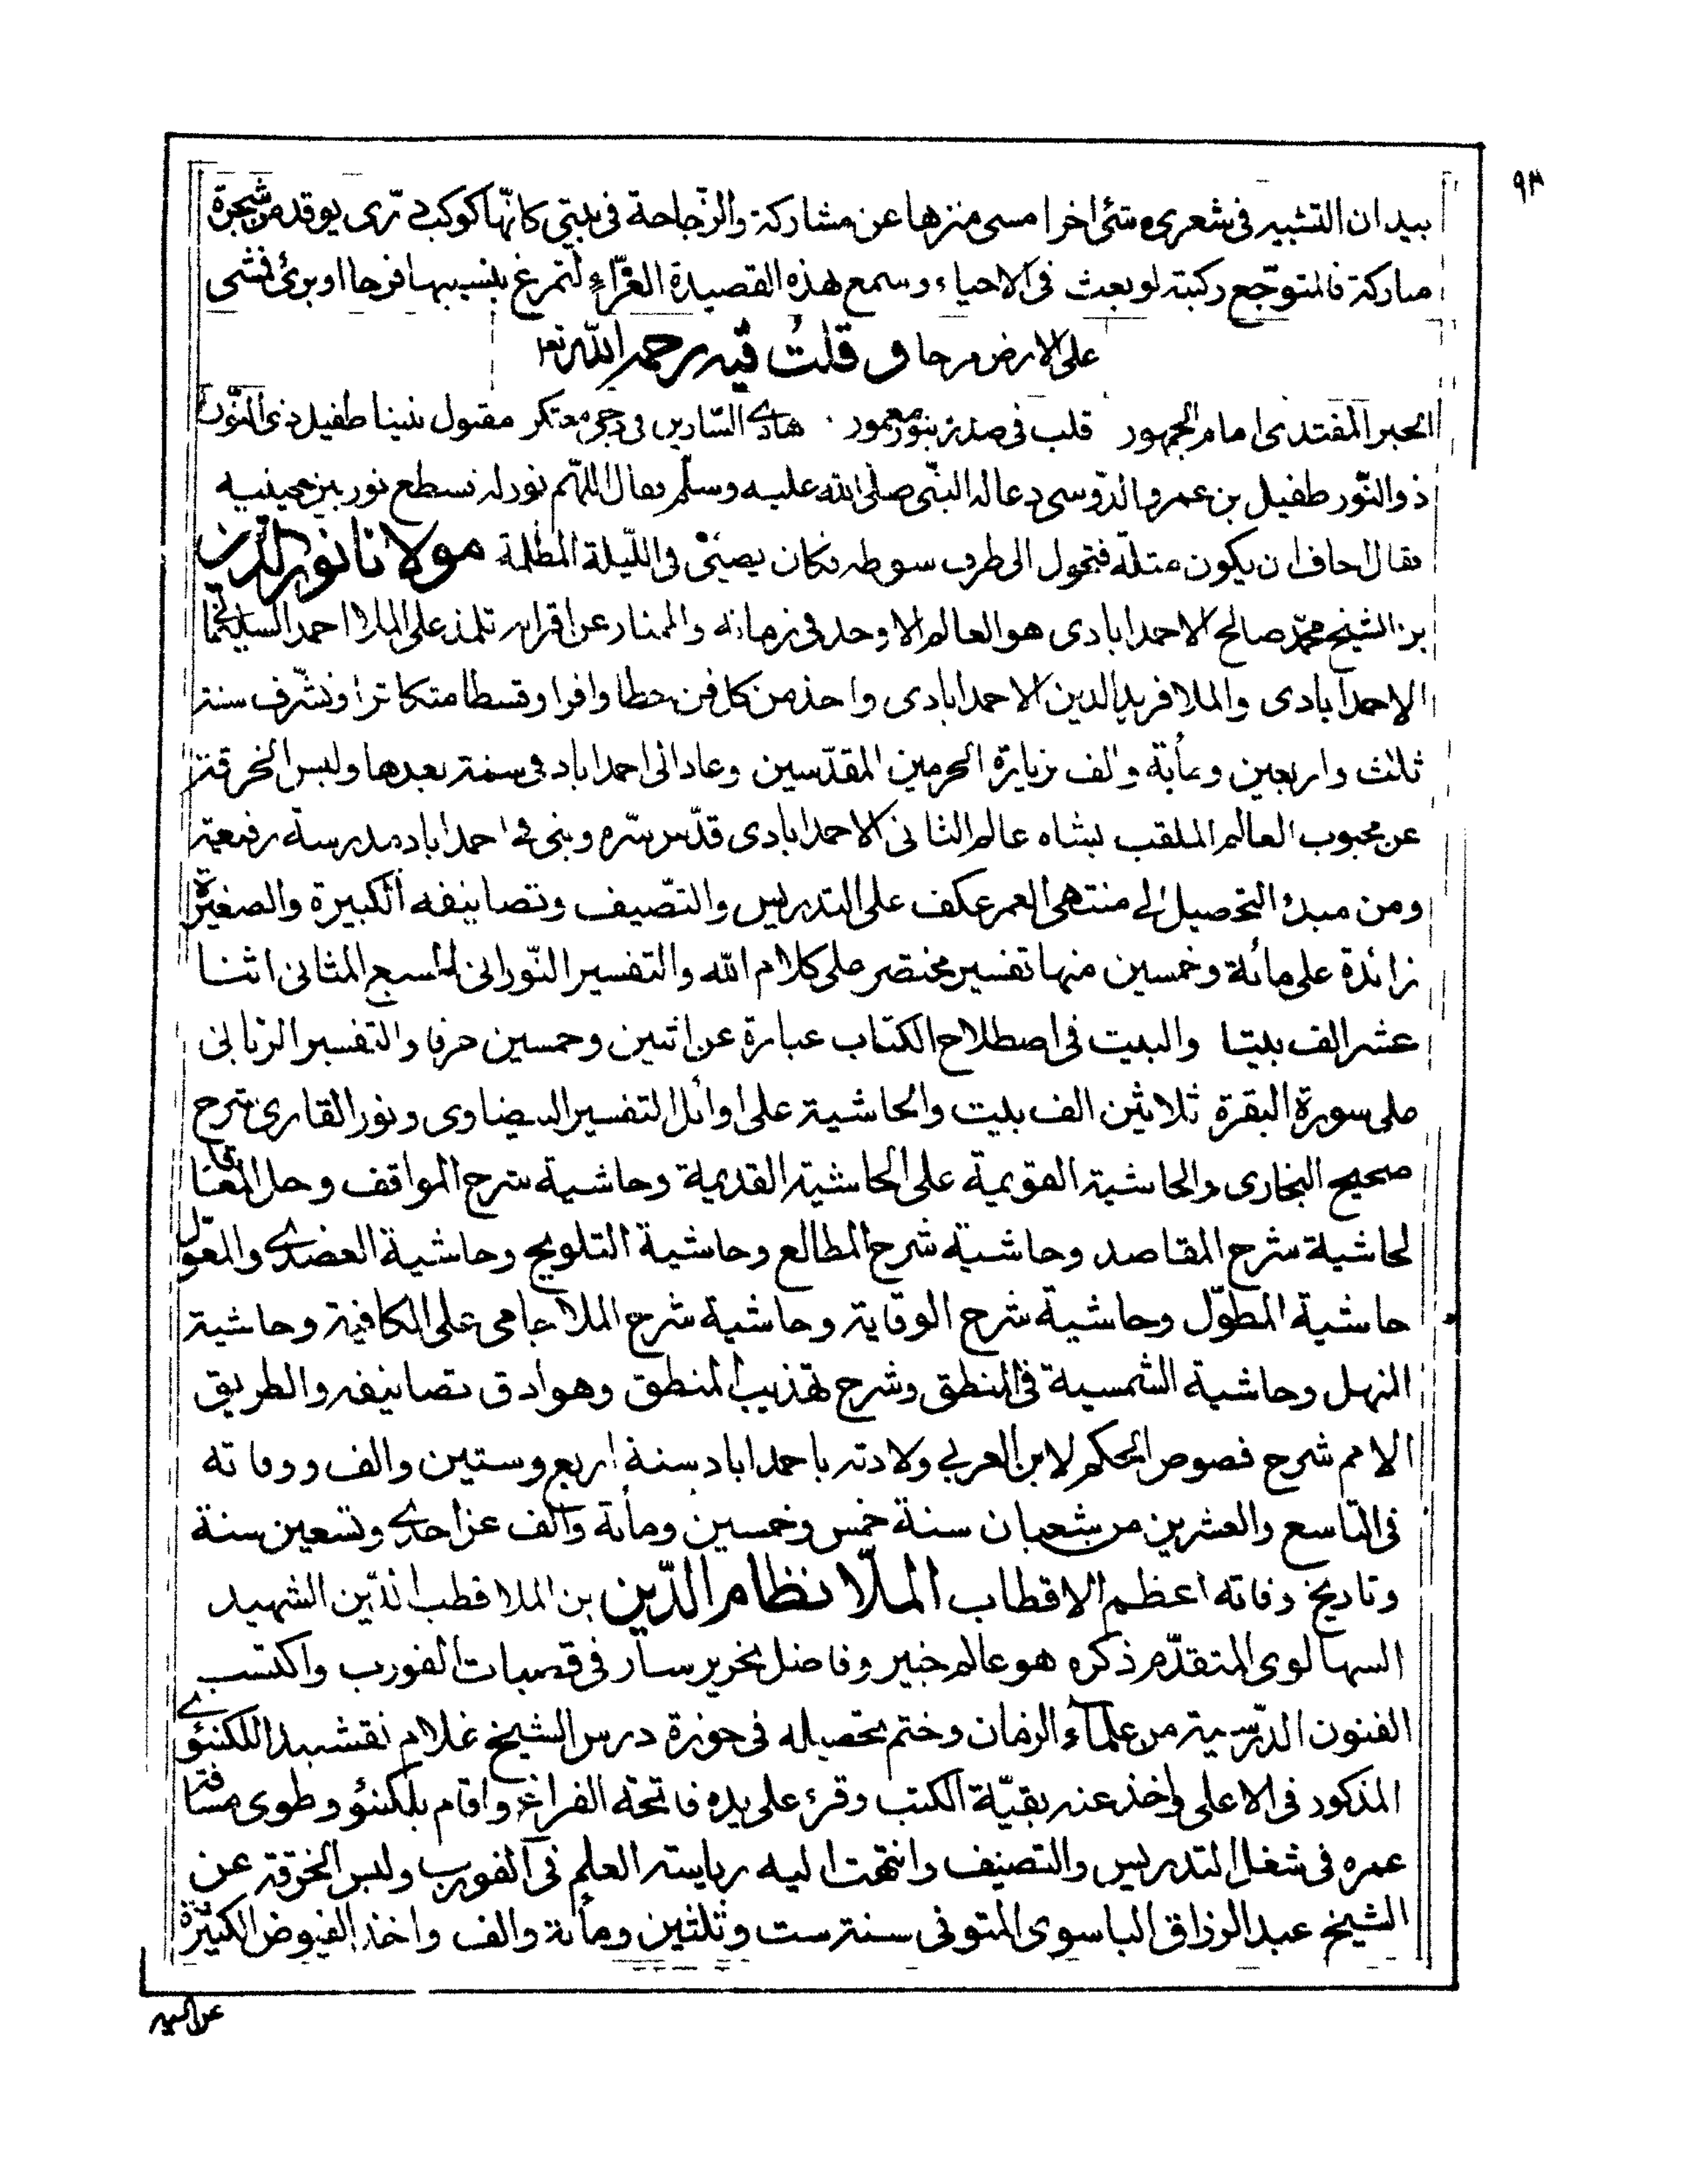 ٩٣
بيد ان التشبيه فى شعرى شئ اخر امسى منزها عن مشاركة والزجاجة فى بيتى كانّها كوكب درّى يوقد من شجرة
مباركة فالمتوجّع ركبته لو بعث فى الاحياء وسمع هذه القصيدة الغرّاء لتمرغ بنسيبها فرحا او برئ فمشى
على الارض مرحا و قلتُ فيه رحمه الله تعا
الحبر المقتدى امام الجمهور قلب فى صدره بنور معمور هادى السّارين فى دجى معتكر مقبول نبينا طفيل ذى النّور
ذو النّور طفيل بن عمرو الدّوسى دعا له النبّى صلى الله عليه وسلّم فقال اللهّم نور له فسطع نور بين عينيه
فقال اخاف ان يكون مثلة فتحول الى طرف سوطه فكان يضئ فى اللّيلة المظلمة مولانا نور الدّين
بن الشيخ محمّد صالح الاحمدابادى هو العالم الاوحد فى زمانه والممتاز عن اقرانه تلمذ على الملا احمد السليمانى
الاحمدابادى والملا فريد الدين الاحمدابادى واخذ من كل فن حظا وافرا وقسطا متكاثرا وتشرّف سنة
ثلاث واربعين ومأية والف بزيارة الحرمين المقدّسين وعاد الى احمداباد فى سنة بعدها ولبس الخرقة
عن محبوب العالم الملقب بشاه عالم الثانى الاحمدابادى قدّس سرّه وبنى فى احمداباد مدرسة رفيعة
ومن مبدئ التحصيل الى منتهى العمر عكف على التدريس والتصيف وتصانيفه الكبيرة والصغيرة
زائدة على مائة وخمسين منها تفسير مختصر على كلام الله والتفسير النّورانى للسبع المثانى اثنا
عشر الف بيتا والبيت فى اصطلاح الكتاب عبارة عن اثنين وخمسين حرفا والتفسير الربانى
على سورة البقرة ثلاثين الف بيت والحاشية على اوائل التفسير البيضاوى ونور القارى شرح
صحيح البخارى والحاشية القويمة على الحاشية القديمة وحاشية شرح المواقف وحل المعاقد
لحاشية شرح المقاصد وحاشية شرح المطالع وحاشية التلويح وحاشية العضدى والمعوّل
حاشية المطوّل وحاشية شرح الوقاية وحاشية شرح الملا جامى على الكافية وحاشية
المنهل وحاشية الشمسية فى المنطق وشرح تهذيب المنطق وهو ادق تصانيفه والطريق
الامم شرح فصوص الحكم لابن العربي ولادته باحمداباد سنة اربع وستين والف ووفاته
فى التاسع والعشرين من شعبان سنة خمس وخمسين ومأية والف عن احدى وتسعين سنة
وتاريخ وفاته اعظم الاقطاب الملّا نظام الدّين بن الملا قطب الدّين الشهيد
السهالوى المتقدّم ذكره هو عالم خبير وفاضل نحرير سار فى قصبات الفورب واكتسب
الفنون الدّرسية من علماء الزمان وختم تحصيله فى حوزة درس الشيخ غلام نقشبند اللكنئوى
المذكور فى الاعلى واخذ عنه بقيّة الكتب وقرء على يده فاتحة الفراغ واقام بلكنئو وطوى مسافة
عمره فى شغل التدريس والتصنيف وانتهت اليه رياسة العلم فى الفورب ولبس الخرقة عن
الشيخ عبد الرزاق الباسوى المتوفى سنة ست وثلثين ومأية والف واخذ الفيوض الكثيرة
عن السيد